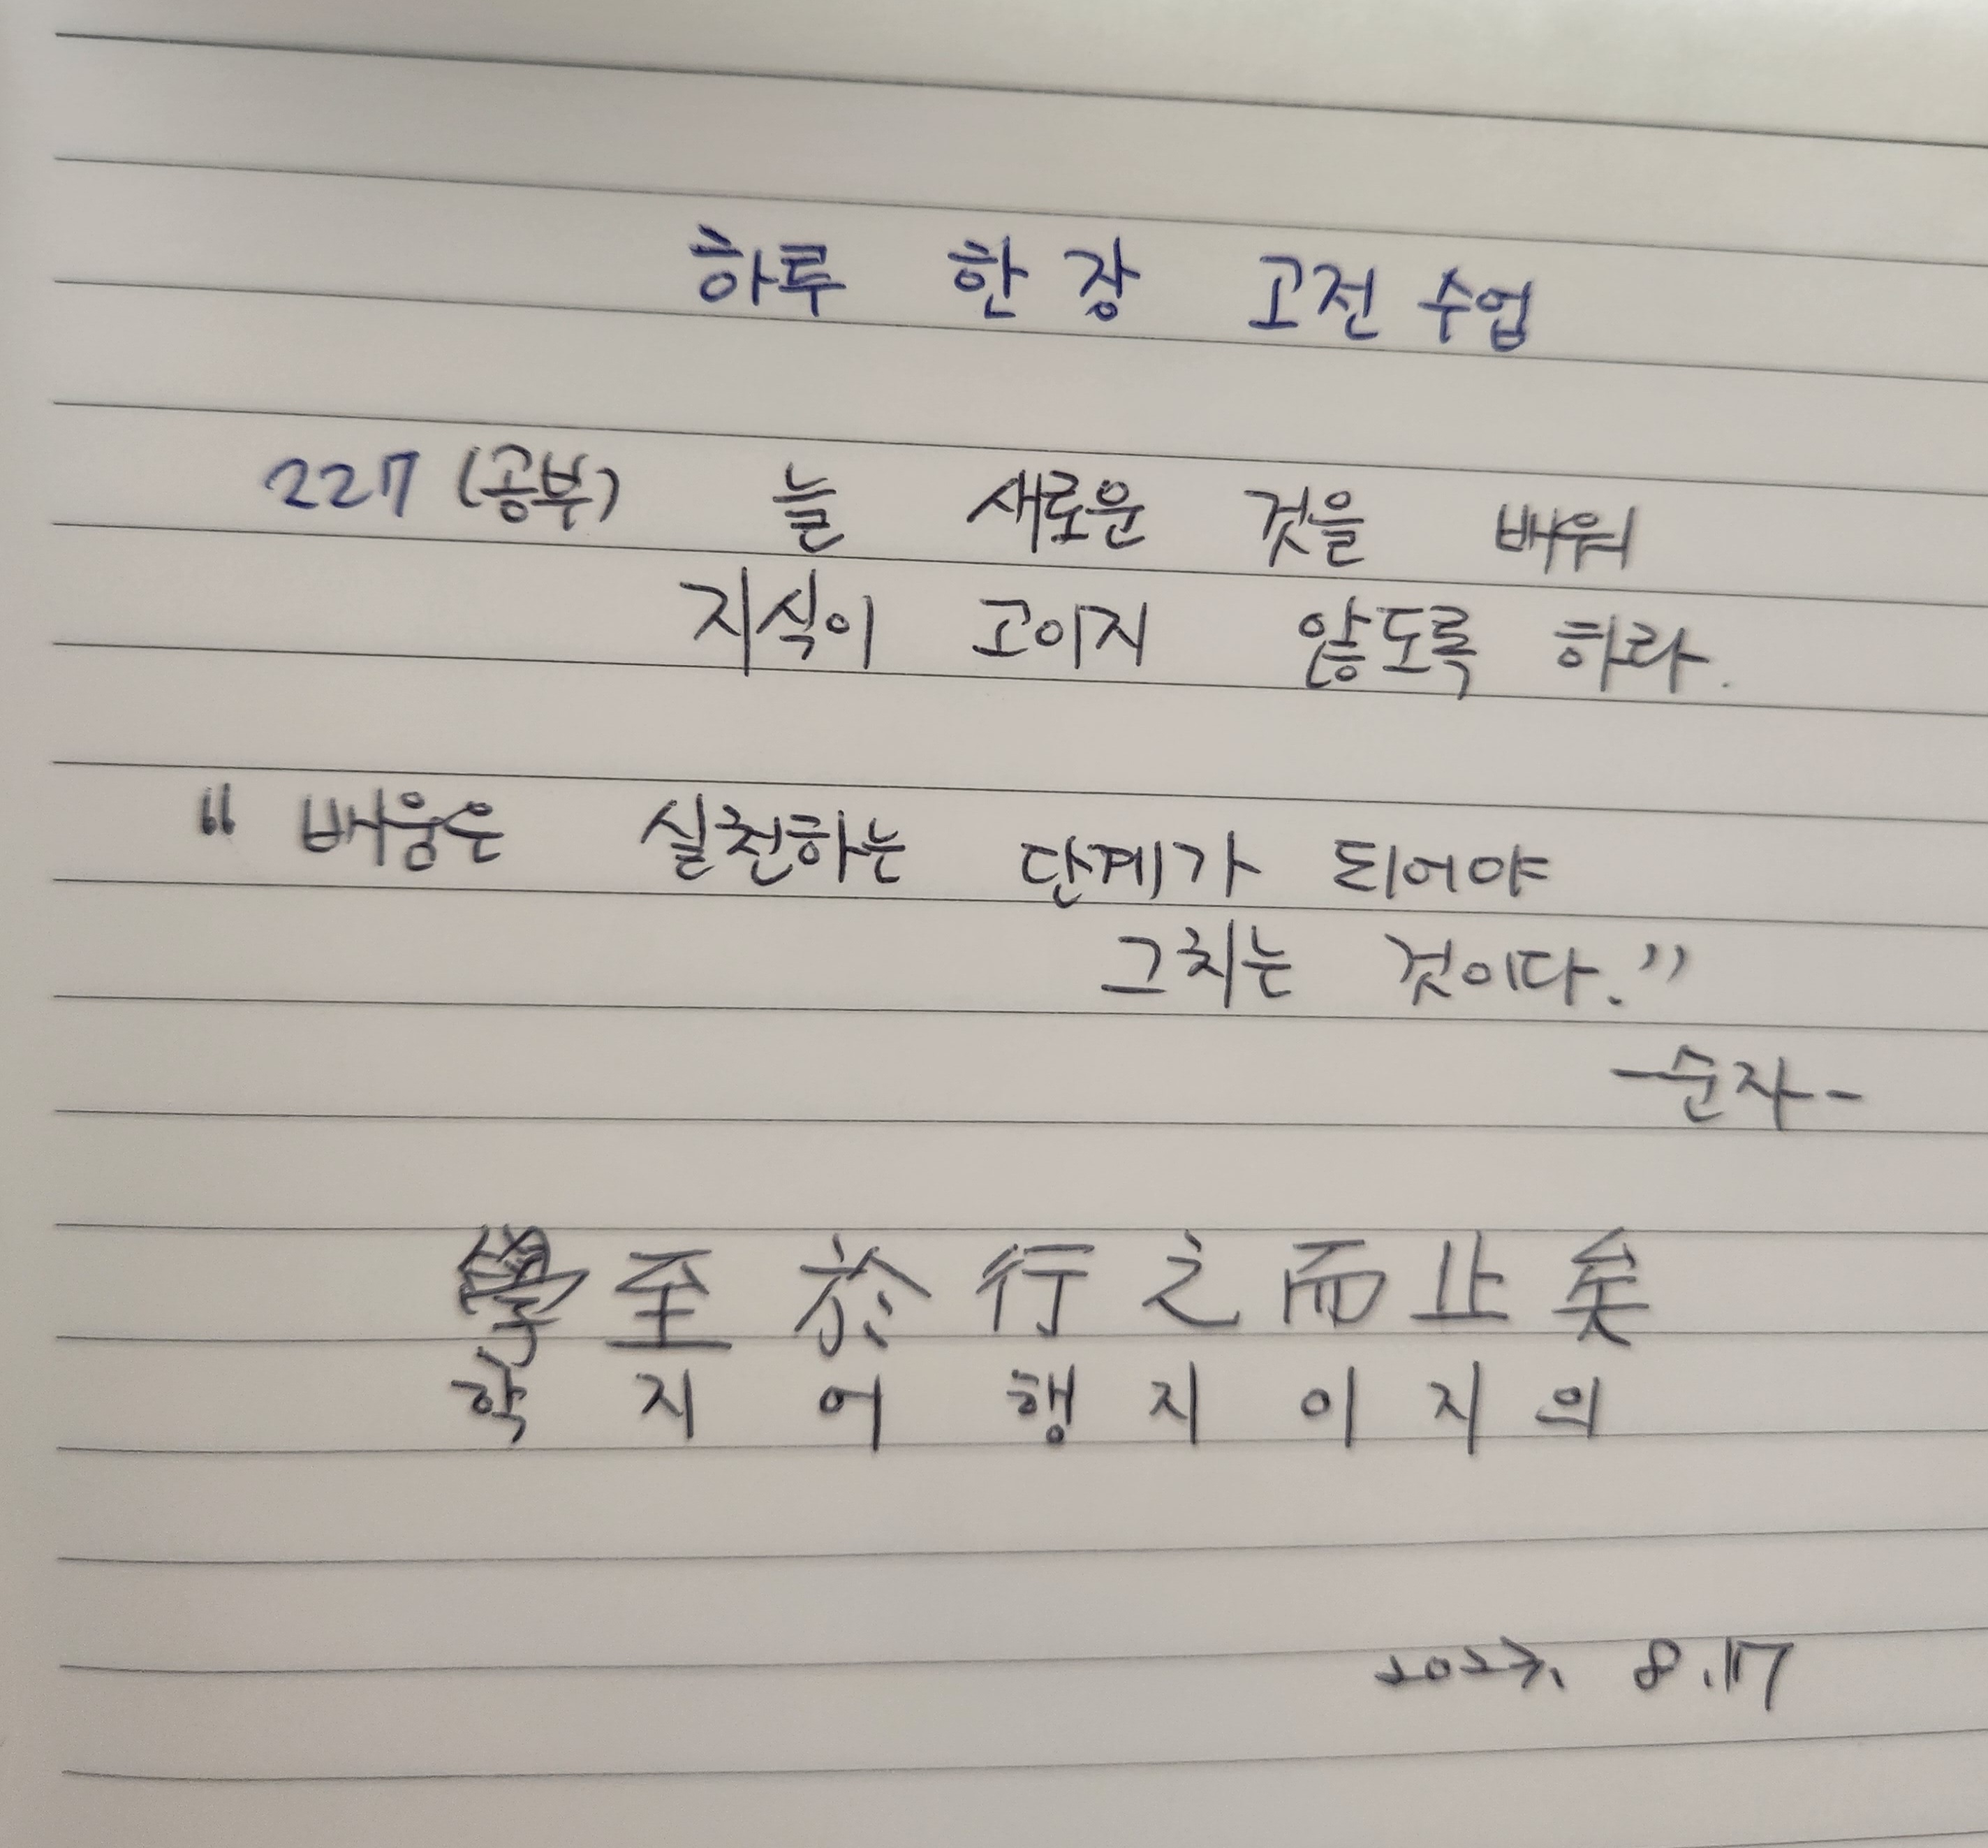 하루 한 장 고전 수업
227 (공부) 늘 새로운 것을 배워
지식이 고이지 않도록 하라.
“배움은 실천하는 단계가 되어야
그치는 것이다.”
-순자-
學至於行之而止矣
학지어행지이지의
2023. 8.17